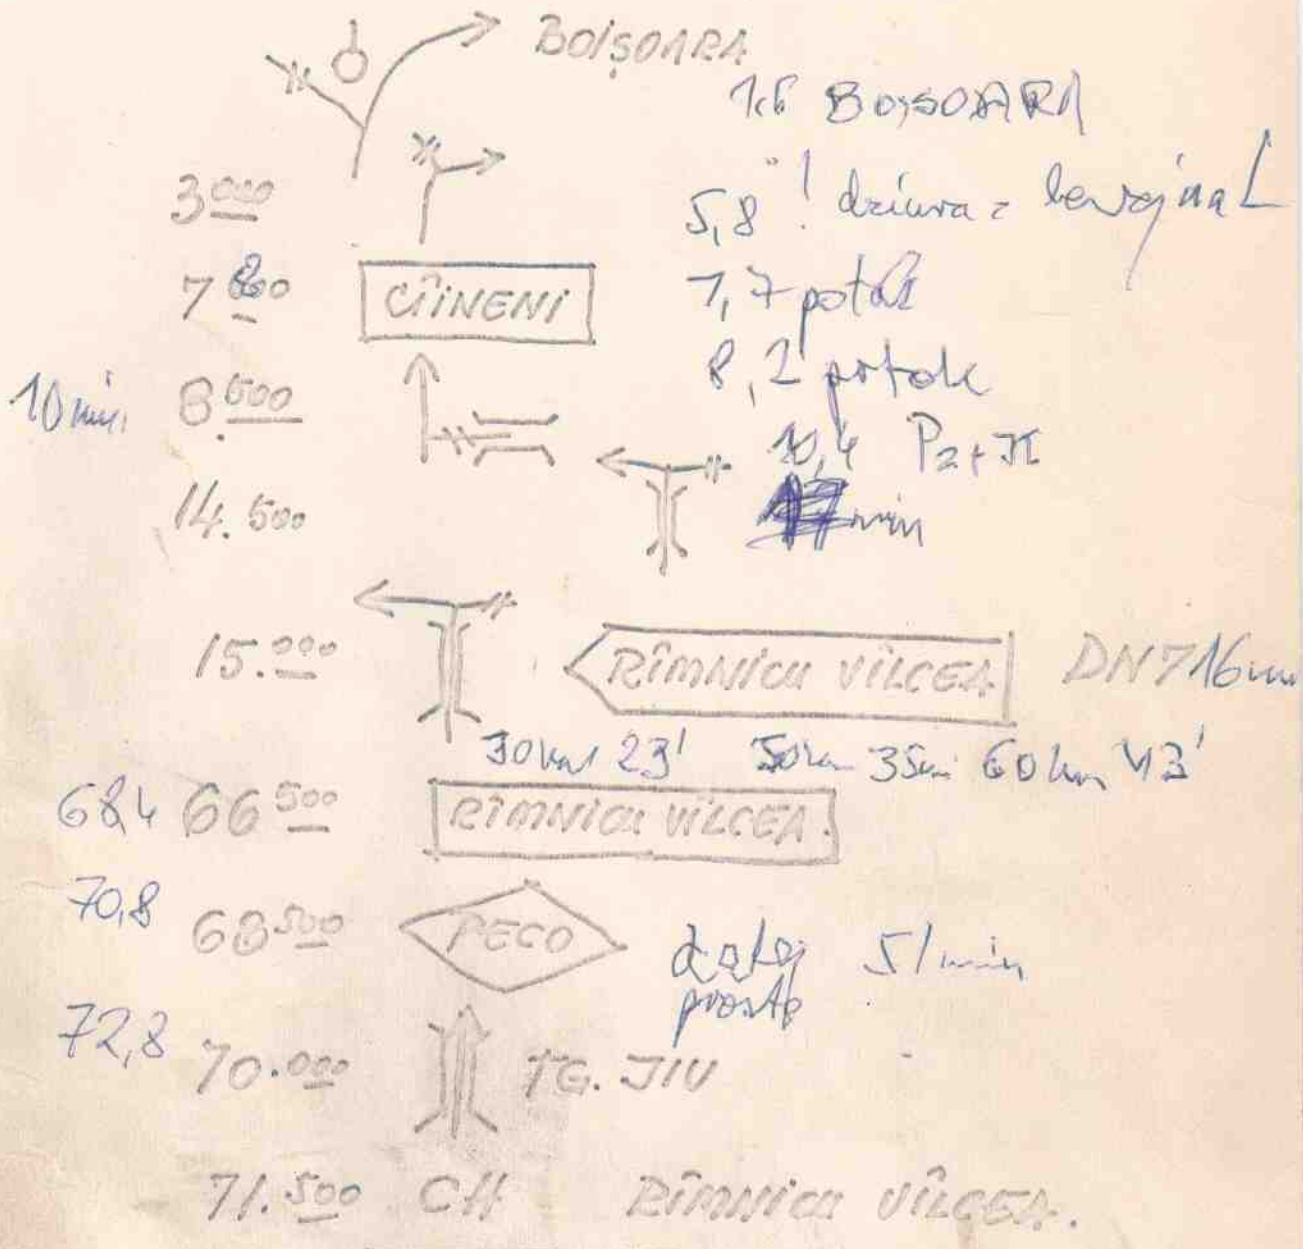 BOIȘOARA
1.6 BOISOARA
3000
5,8 ! dziura z lewej na L
7800 CÎINENI 7,7 potok
8,2 potok
10 min. 8.500
10,4
14.500 17 min
15.000 RÎMNICU VÎLCEA DN7 16 min
30 km 23' 50 km 35 min 60 km 43'
68,4 66500 RÎMNICU VÎLCEA.
70,8 68500 PECO dalej prosto 51 min
72,8 70.000 TG. JIU
71.500 CH RÎMNICU VÎLCEA.